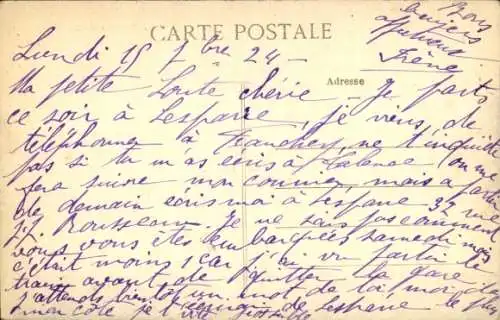 CARTE POSTALE
Bons
baisers
affectueux
Irène
Lundi 15 7bre 24 –
Adresse
Ma petite Loute chérie – Je pars
ce soir à Lesparre, je viens de
téléphoner à ne t'inquiète
pas si tu m'as écris à Talence on me
fera suivre mon courrier, mais à partir
de demain écris moi à Lesparre 32 rue
J.J. Rousseau. Je ne sais pas comment
vous vous êtes embarquées samedi mais
c'était moins 1 car j'ai vu partir le
tram avant de quitter la gare. Je
j'attends bientôt un mot de toi, moi de
mon côté je t'écrirai de Lesparre le plus
vite possible